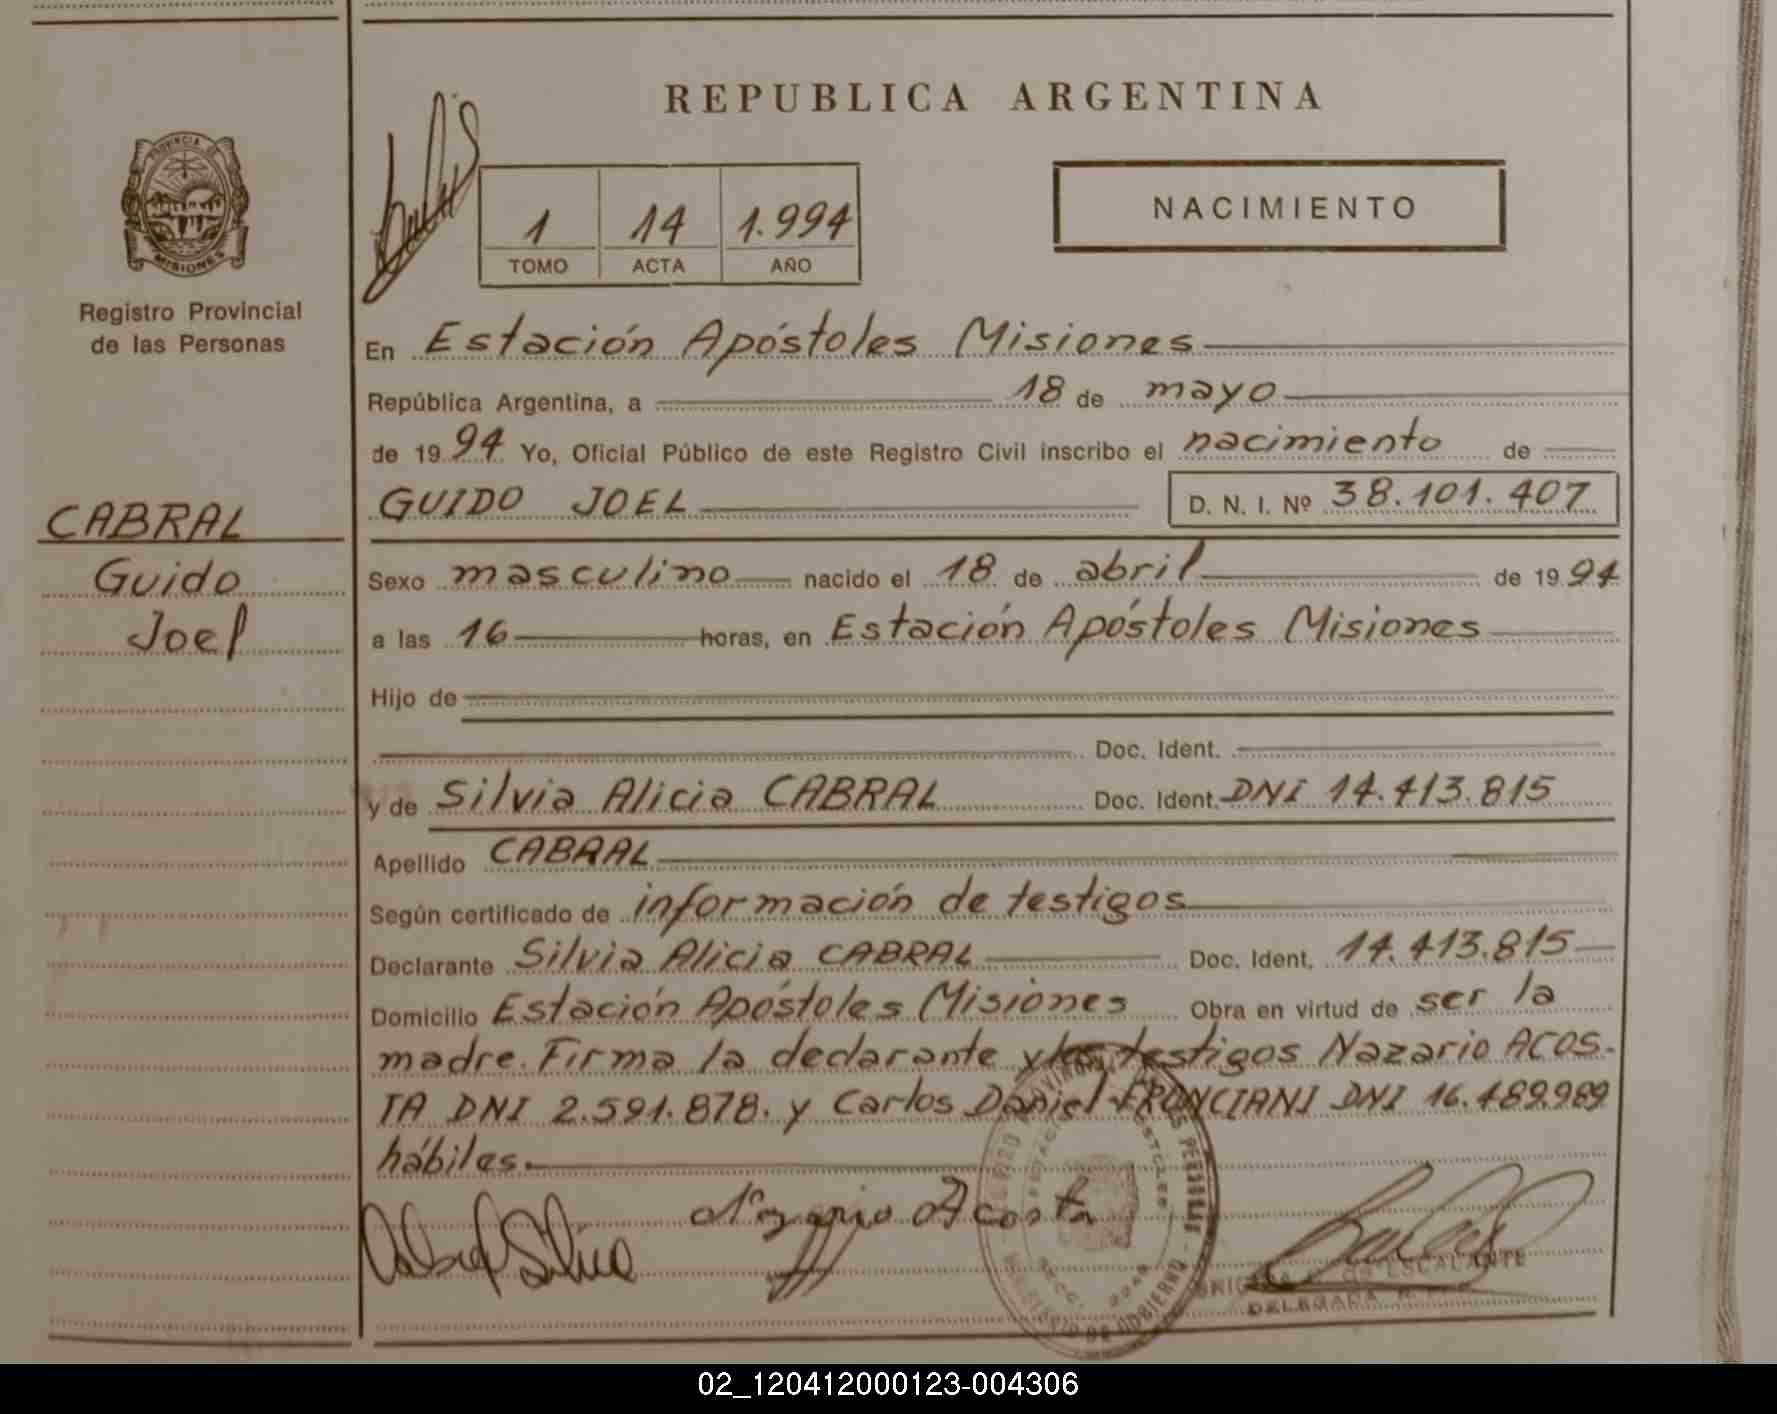 REPUBLICA ARGENTINA
PROVINCIA DE
MISIONES
Registro Provincial
de las Personas
1 14 1.994
TOMO ACTA AÑO
NACIMIENTO
En Estación Apóstoles Misiones
República Argentina, a 18 de mayo
de 1994 Yo, Oficial Público de este Registro Civil inscribo el nacimiento de
GUIDO JOEL D. N. I. Nº 38.101.407
CABRAL
Guido
Joel
Sexo masculino nacido el 18 de abril de 1994
a las 16 horas, en Estación Apóstoles Misiones
Hijo de
Doc. Ident.
y de Silvia Alicia CABRAL Doc. Ident. DNI 14.413.815
Apellido CABRAL
Según certificado de información de testigos
Declarante Silvia Alicia CABRAL Doc. Ident. 14.413.815
Domicilio Estación Apóstoles Misiones Obra en virtud de ser la
madre. Firma la declarante y los testigos Nazario ACOS-
TA DNI 2.591.878. y Carlos Daniel FRONCIANI DNI 16.489.989
hábiles.
Cabral Silvia Nazario Acosta
ESCALANTE
DELEGADA
MINISTERIO DE GOBIERNO
02_120412000123-004306